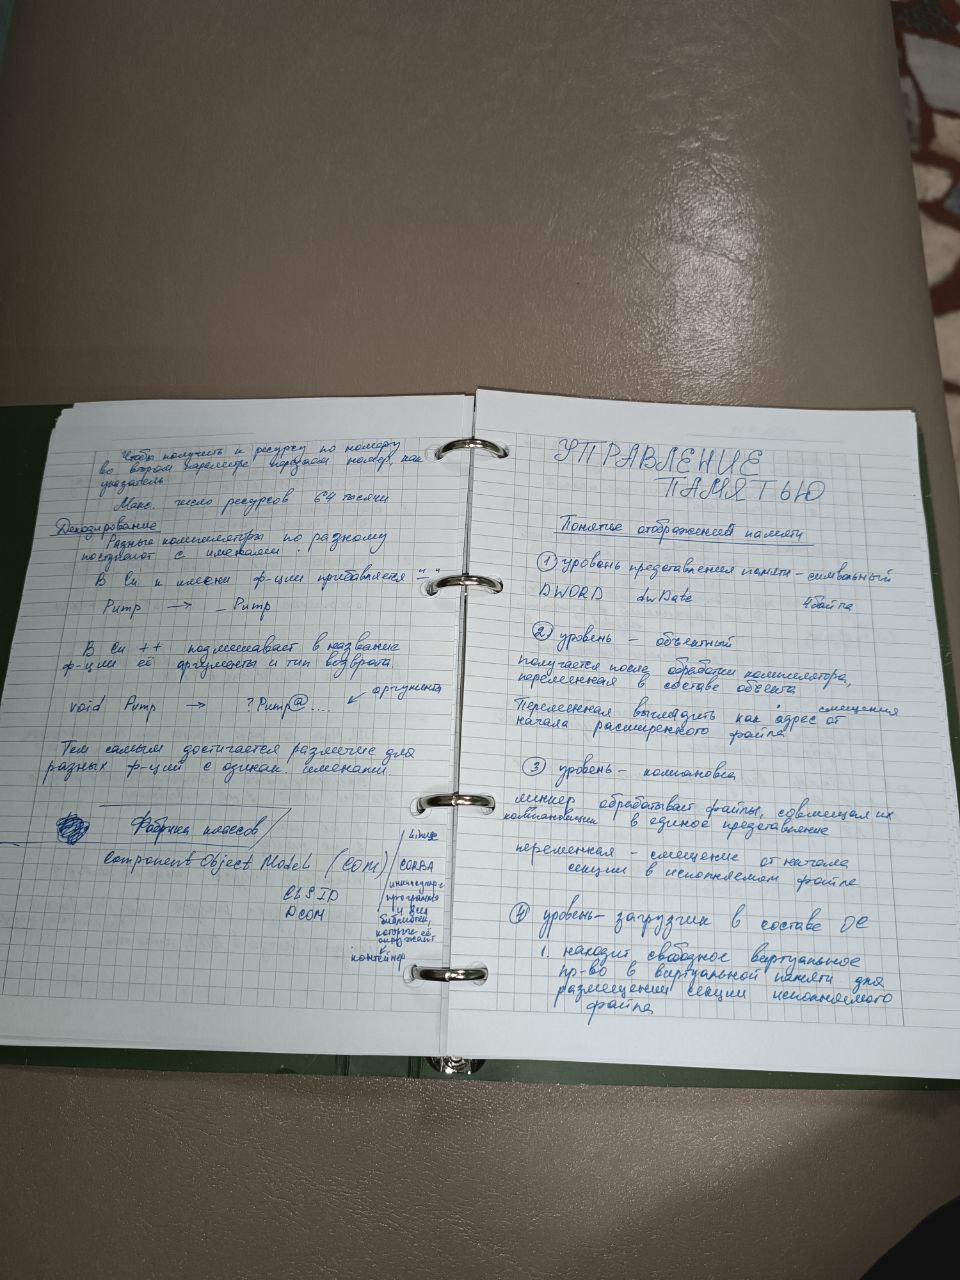 Чтобы получить к ресурсу по номеру
во втором параметре передаем номер, как
указатель
Макс. число ресурсов 64 тысячи
Декодирование
Разные компиляторы по разному
поступают с именами.
В Си к имени ф-ции прибавляется "_"
Pump → _Pump
В Си ++ подмешивает в название
ф-ции её аргументы и тип возврата.
аргументы
void Pump → ?Pump@....
Тем самым достигается различие для
разных ф-ций с одинак. именами.
Фабрика классов
Component Object Model (COM)
CLSID
DCOM
Linux
CORBA
программы
и для
библиотек,
которые её
окружают
контейнер
УПРАВЛЕНИЕ
ПАМЯТЬЮ
Понятие отображения памяти
① уровень представления памяти – символьный
DWORD dwDate 4 байта
② уровень – объектный
получается после обработки компилятора,
переменная в составе объекта
Переменная выглядит как адрес от смещения
начала расширенного файла
③ уровень – компановка
линкер обрабатывает файлы, совмещая их
компановщик в единое представление
переменная – смещение от начала
секции в исполняемом файле
④ уровень – загрузчик в составе ОС
1. находит свободное виртуальное
пр-во в виртуальной памяти для
размещения секции исполняемого
файла